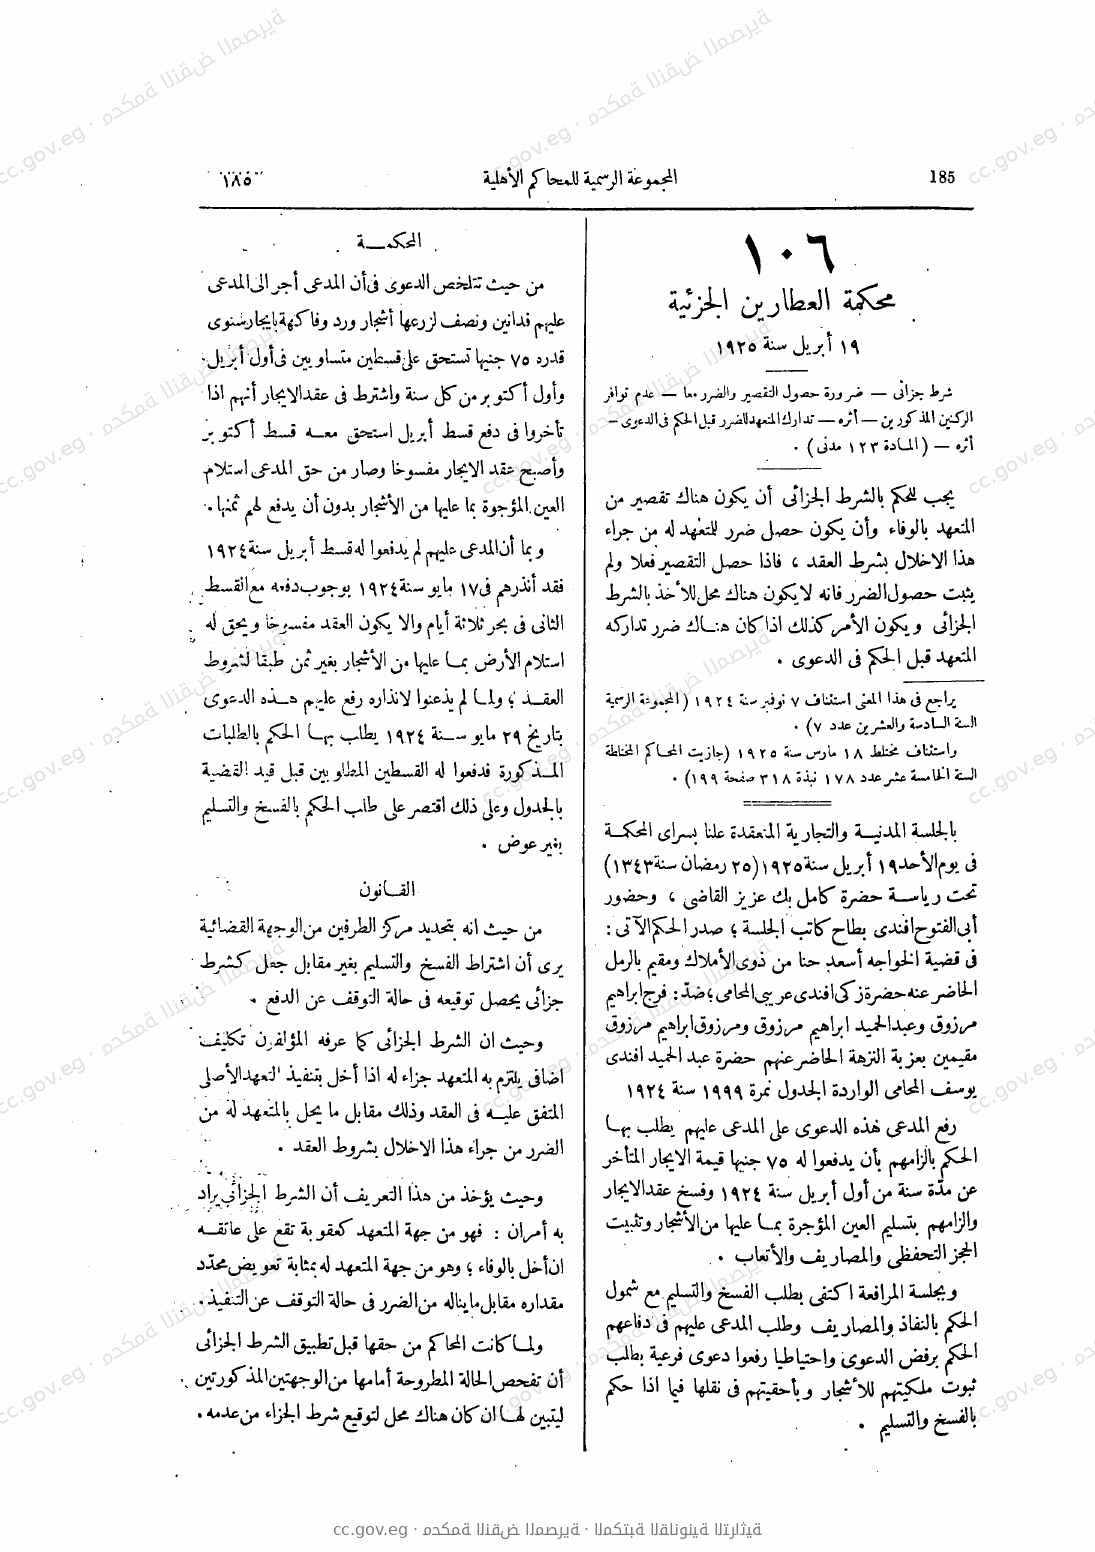 185
المجموعة الرسمية للمحاكم الأهلية
١٨٥
١٠٦
محكمة العطارين الجزئية
١٩ أبريل سنة ١٩٢٥
شرط جزائى — ضرورة حصول التقصير والضرر معا — عدم توافر
الركنين المذكورين — أثره — تدارك المتعهد للضرر قبل الحكم فى الدعوى —
أثره — (المادة ١٢٣ مدنى) .
يجب للحكم بالشرط الجزائى أن يكون هناك تقصير من
المتعهد بالوفاء وأن يكون حصل ضرر للمتعهد له من جراء
هذا الاخلال بشرط العقد ، فاذا حصل التقصير فعلا ولم
يثبت حصول الضرر فانه لا يكون هناك محل للأخذ بالشرط
الجزائى ويكون الأمر كذلك اذا كان هناك ضرر تداركه
المتعهد قبل الحكم فى الدعوى .
يراجع فى هذا المعنى استئناف ٧ نوفمبر سنة ١٩٢٤ (المجموعة الرسمية
السنة السادسة والعشرين عدد ٧) .
واستئناف مختلط ١٨ مارس سنة ١٩٢٥ (جازيت المحاكم المختلطة
السنة الخامسة عشر عدد ١٧٨ نبذة ٣١٨ صفحة ١٩٩) .
بالجلسة المدنية والتجارية المنعقدة علنا بسراى المحكمة
فى يوم الأحد ١٩ أبريل سنة ١٩٢٥ (٢٥ رمضان سنة ١٣٤٣)
تحت رياسة حضرة كامل بك عزيز القاضى ، وحضور
أبى الفتوح افندى بطاح كاتب الجلسة ؛ صدر الحكم الآتى :
فى قضية الخواجه أسعد حنا من ذوى الأملاك ومقيم بالرمل
الحاضر عنه حضرة زكى افندى عريبى المحامى ؛ ضدّ : فرج ابراهيم
مرزوق وعبد الحميد ابراهيم مرزوق ومرزوق ابراهيم مرزوق
مقيمين بعزبة النزهة الحاضر عنهم حضرة عبد الحميد افندى
يوسف المحامى الواردة الجدول نمرة ١٩٩٩ سنة ١٩٢٤
رفع المدعى هذه الدعوى على المدعى عليهم يطلب بها
الحكم بالزامهم بأن يدفعوا له ٧٥ جنيها قيمة الايجار المتأخر
عن مدّة سنة من أول أبريل سنة ١٩٢٤ وفسخ عقد الايجار
والزامهم بتسليم العين المؤجرة بما عليها من الأشجار وتثبيت
الحجز التحفظى والمصاريف والأتعاب .
وبجلسة المرافعة اكتفى بطلب الفسخ والتسليم مع شمول
الحكم بالنفاذ والمصاريف وطلب المدعى عليهم فى دفاعهم
الحكم برفض الدعوى واحتياطيا رفعوا دعوى فرعية بطلب
ثبوت ملكيتهم للأشجار وبأحقيتهم فى نقلها فيما اذا حكم
بالفسخ والتسليم .
المحكمة
من حيث تتلخص الدعوى فى أن المدعى أجر الى المدعى
عليهم فدانين ونصف لزرعها أشجار ورد وفاكهة بايجار سنوى
قدره ٧٥ جنيها تستحق على قسطين متساويين فى أول أبريل
وأول أكتوبر من كل سنة واشترط فى عقد الايجار أنهم اذا
تأخروا فى دفع قسط أبريل استحق معه قسط أكتوبر
وأصبح عقد الايجار مفسوخا وصار من حق المدعى استلام
العين المؤجوة بما عليها من الأشجار بدون أن يدفع لهم ثمنها .
وبما أن المدعى عليهم لم يدفعوا له قسط أبريل سنة ١٩٢٤
فقد أنذرهم فى ١٧ مايو سنة ١٩٢٤ بوجوب دفعه مع القسط
الثانى فى بحر ثلاثة أيام والا يكون العقد مفسوخا ويحق له
استلام الأرض بما عليها من الأشجار بغير ثمن طبقا لشروط
العقد ؛ ولما لم يذعنوا لانذاره رفع عليهم هذه الدعوى
بتاريخ ٢٩ مايو سنة ١٩٢٤ يطلب بها الحكم بالطلبات
المذكورة فدفعوا له القسطين المطلوبين قبل قيد القضية
بالجدول وعلى ذلك اقتصر على طلب الحكم بالفسخ والتسليم
بغير عوض .
القانون
من حيث انه بتحديد مركز الطرفين من الوجهة القضائية
يرى أن اشتراط الفسخ والتسليم بغير مقابل جعل كشرط
جزائى يحصل توقيعه فى حالة التوقف عن الدفع .
وحيث ان الشرط الجزائى كما عرفه المؤلفون تكليف
اضافى يلتزم به المتعهد جزاء له اذا أخل بتنفيذ التعهد الأصلى
المتفق عليه فى العقد وذلك مقابل ما يحل بالمتعهد له من
الضرر من جراء هذا الاخلال بشروط العقد .
وحيث يؤخذ من هذا التعريف أن الشرط الجزائى يراد
به أمران : فهو من جهة المتعهد كعقوبة تقع على عاتقه
ان أخل بالوفاء ؛ وهو من جهة المتعهد له بمثابة تعويض محدّد
مقداره مقابل ما يناله من الضرر فى حالة التوقف عن التنفيذ .
ولما كانت المحاكم من حقها قبل تطبيق الشرط الجزائى
أن تفحص الحالة المطروحة أمامها من الوجهتين المذكورتين
ليتبين لها ان كان هناك محل لتوقيع شرط الجزاء من عدمه .
cc.gov.eg · محكمة النقض المصرية · المكتبة القانونية التراثية